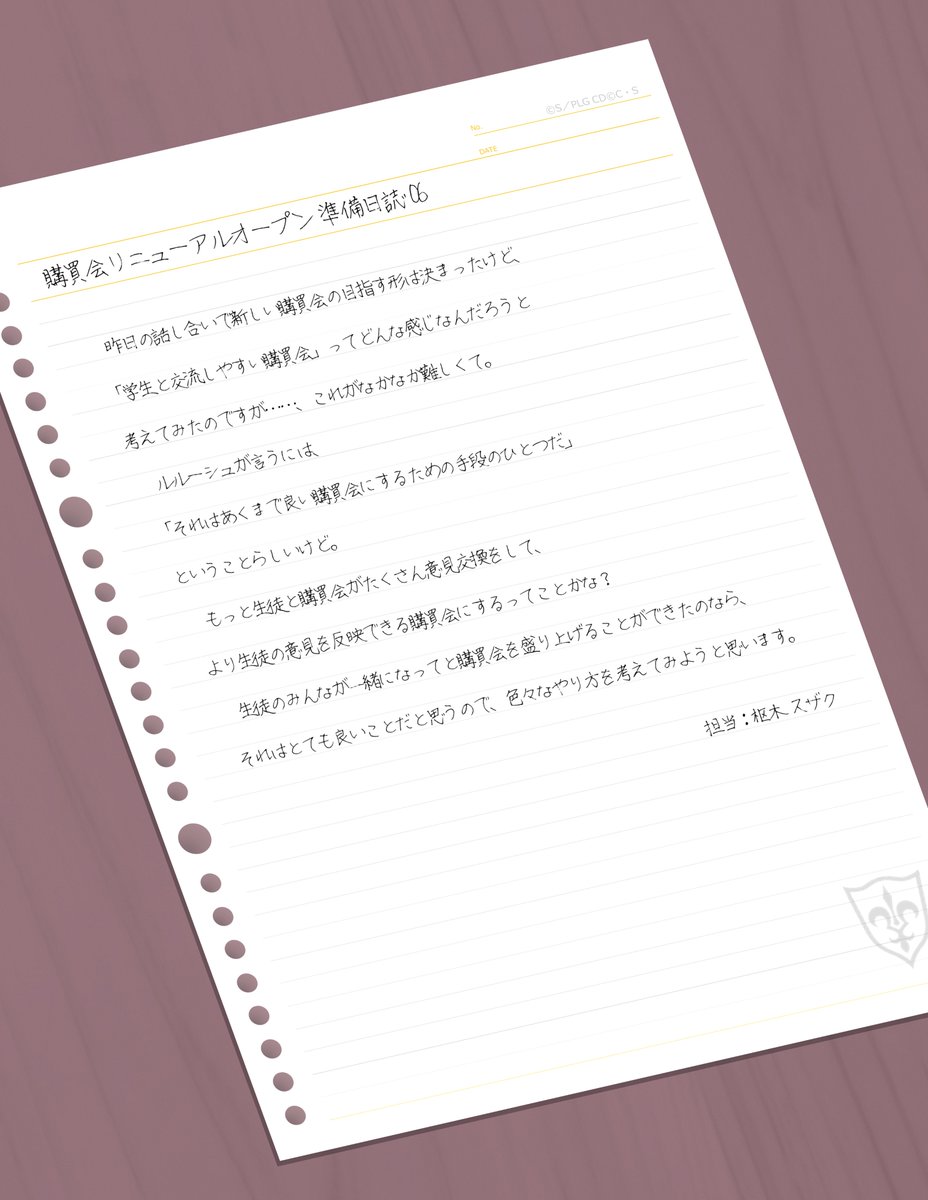 ©S／PLG CD©C・S
No.
DATE
購買会リニューアルオープン準備日誌06
昨日の話し合いで新しい購買会の目指す形は決まったけど、
「学生と交流しやすい購買会」ってどんな感じなんだろうと
考えてみたのですが……、これがなかなか難しくて。
ルルーシュが言うには
「それはあくまで良い購買会にするための手段のひとつだ」
ということらしいけど。
もっと生徒と購買会がたくさん意見交換をして、
より生徒の意見を反映できる購買会にするってことかな？
生徒のみんなが一緒になってと購買会を盛り上げることができたのなら、
それはとても良いことだと思うので、色々なやり方を考えてみようと思います。
担当：枢木スザク